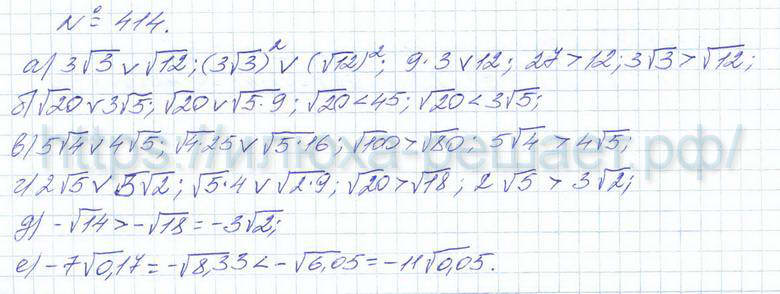 № 414.
а) 3√3 ∨ √12; (3√3)² ∨ (√12)²; 9·3 ∨ 12; 27 > 12; 3√3 > √12;
б) √20 ∨ 3√5; √20 ∨ √5·9; √20 < 45; √20 < 3√5;
в) 5√4 ∨ 4√5; √4·25 ∨ √5·16; √100 > √80; 5√4 > 4√5;
г) 2√5 ∨ 3√2; √5·4 ∨ √2·9; √20 > √18; 2√5 > 3√2;
д) -√14 > -√18 = -3√2;
е) -7√0,17 = -√8,33 < -√6,05 = -11√0,05.
https://илюха-решает.рф/